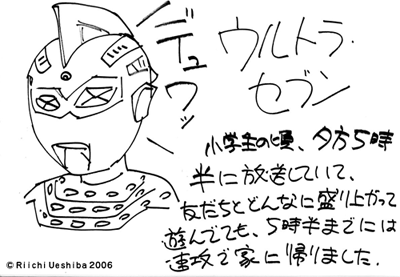 デュワッ
ウルトラ・
セブン
小学生の頃、夕方5時
半に放送していて、
友だちとどんなに盛り上がって
遊んでても、5時半までには
速攻で家に帰りました.
©Riichi Ueshiba 2006